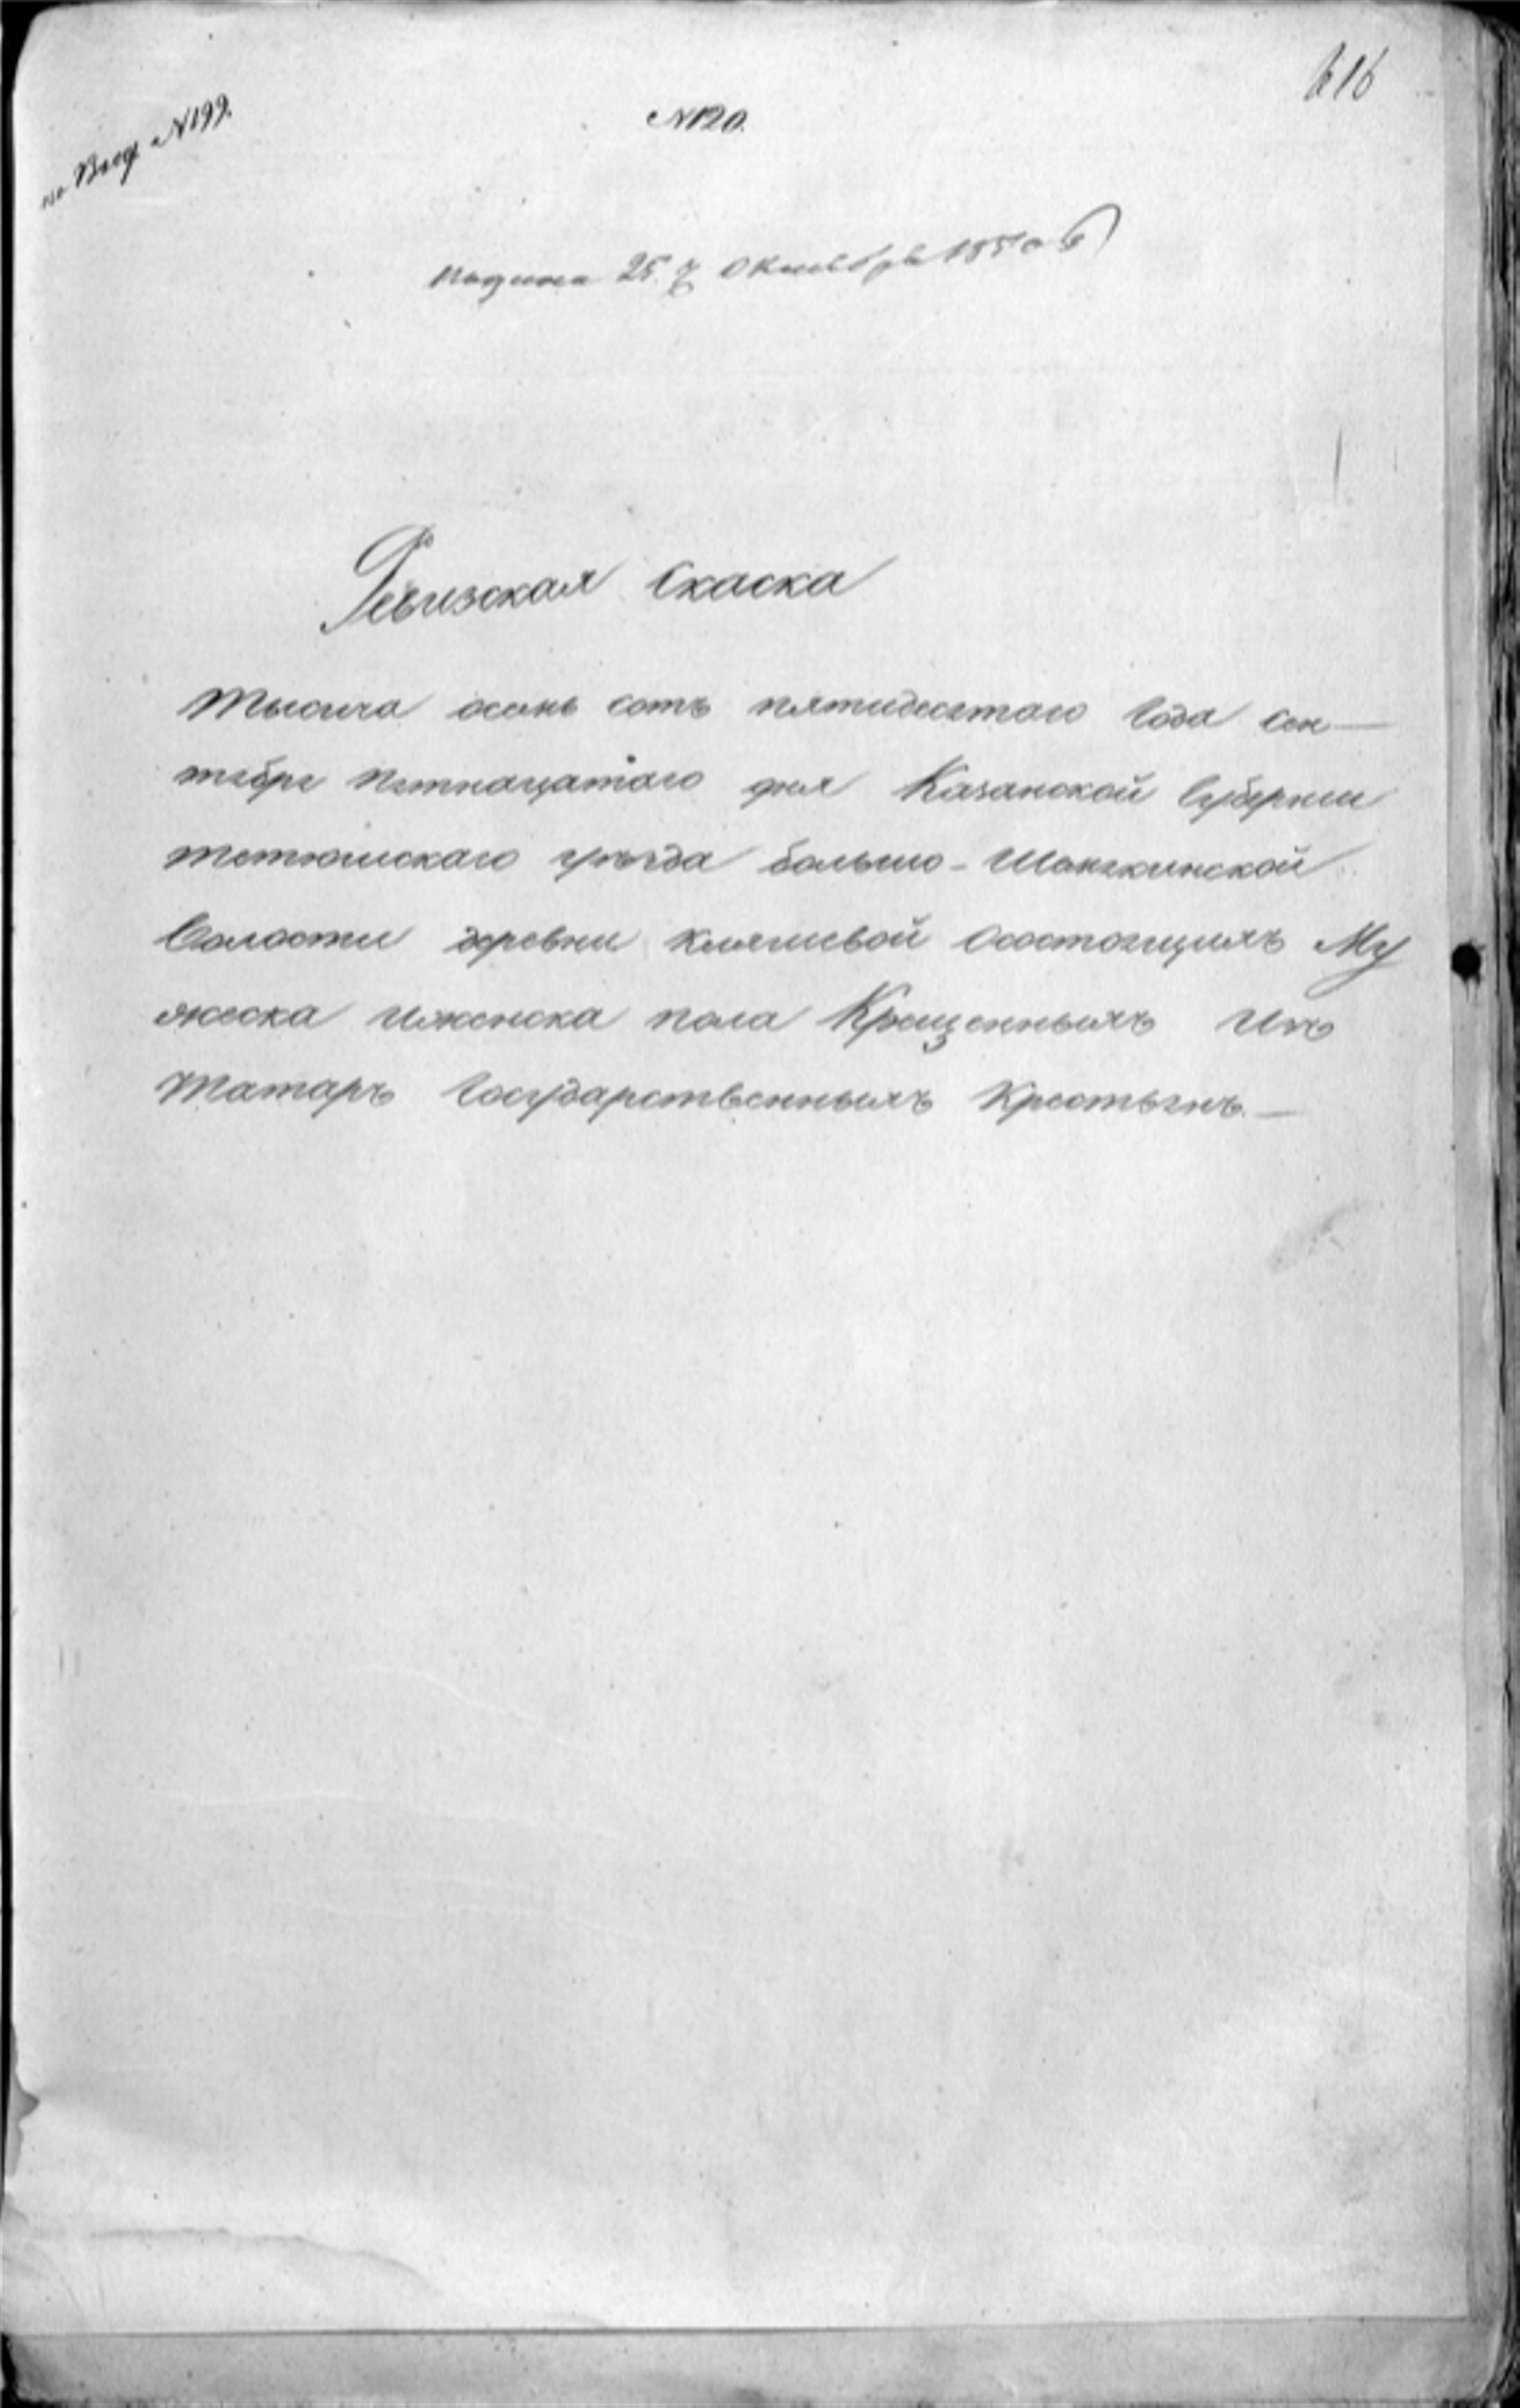 616
по Вход №199.
№120.
Подана 25. Октября 1850 г
Ревизская Скаска
Тысяча осемь сотъ пятидесятаго Года Сен—
тября пятнацатаго дня Казанской Губернии
тетюшскаго уѣзда больше-Шонгкинской
Волости деревни Кляшевой Осостоящихъ Му
жеска Иженска пола Крещенныхъ Изъ
Татаръ Государственныхъ Крестьянъ.—